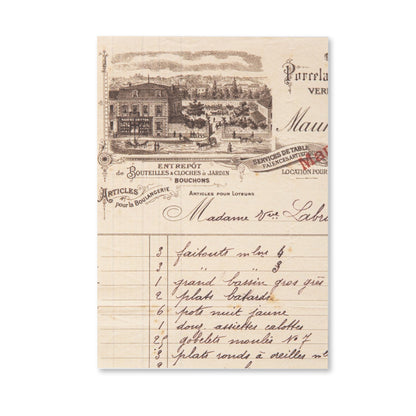 Porcela
VER
Maur
MAURICE
SERVICES DE TABLE
FAIENCES ARTIST
Mar
LOCATION POUR
ENTREPÔT
de BOUTEILLES & CLOCHES à JARDIN
BOUCHONS
ARTICLES
pour la BOULANGERIE
ARTICLES POUR LOTEURS
Madame Vve Labri
3 faitouts mlne 4
3 " " 3
1 grand bassin gros grès
2 plats batards
6 pots nuit jaune
1 douz assiettes calottes
2 gobelets moulés No 7
3 plats ronds à oreilles ml